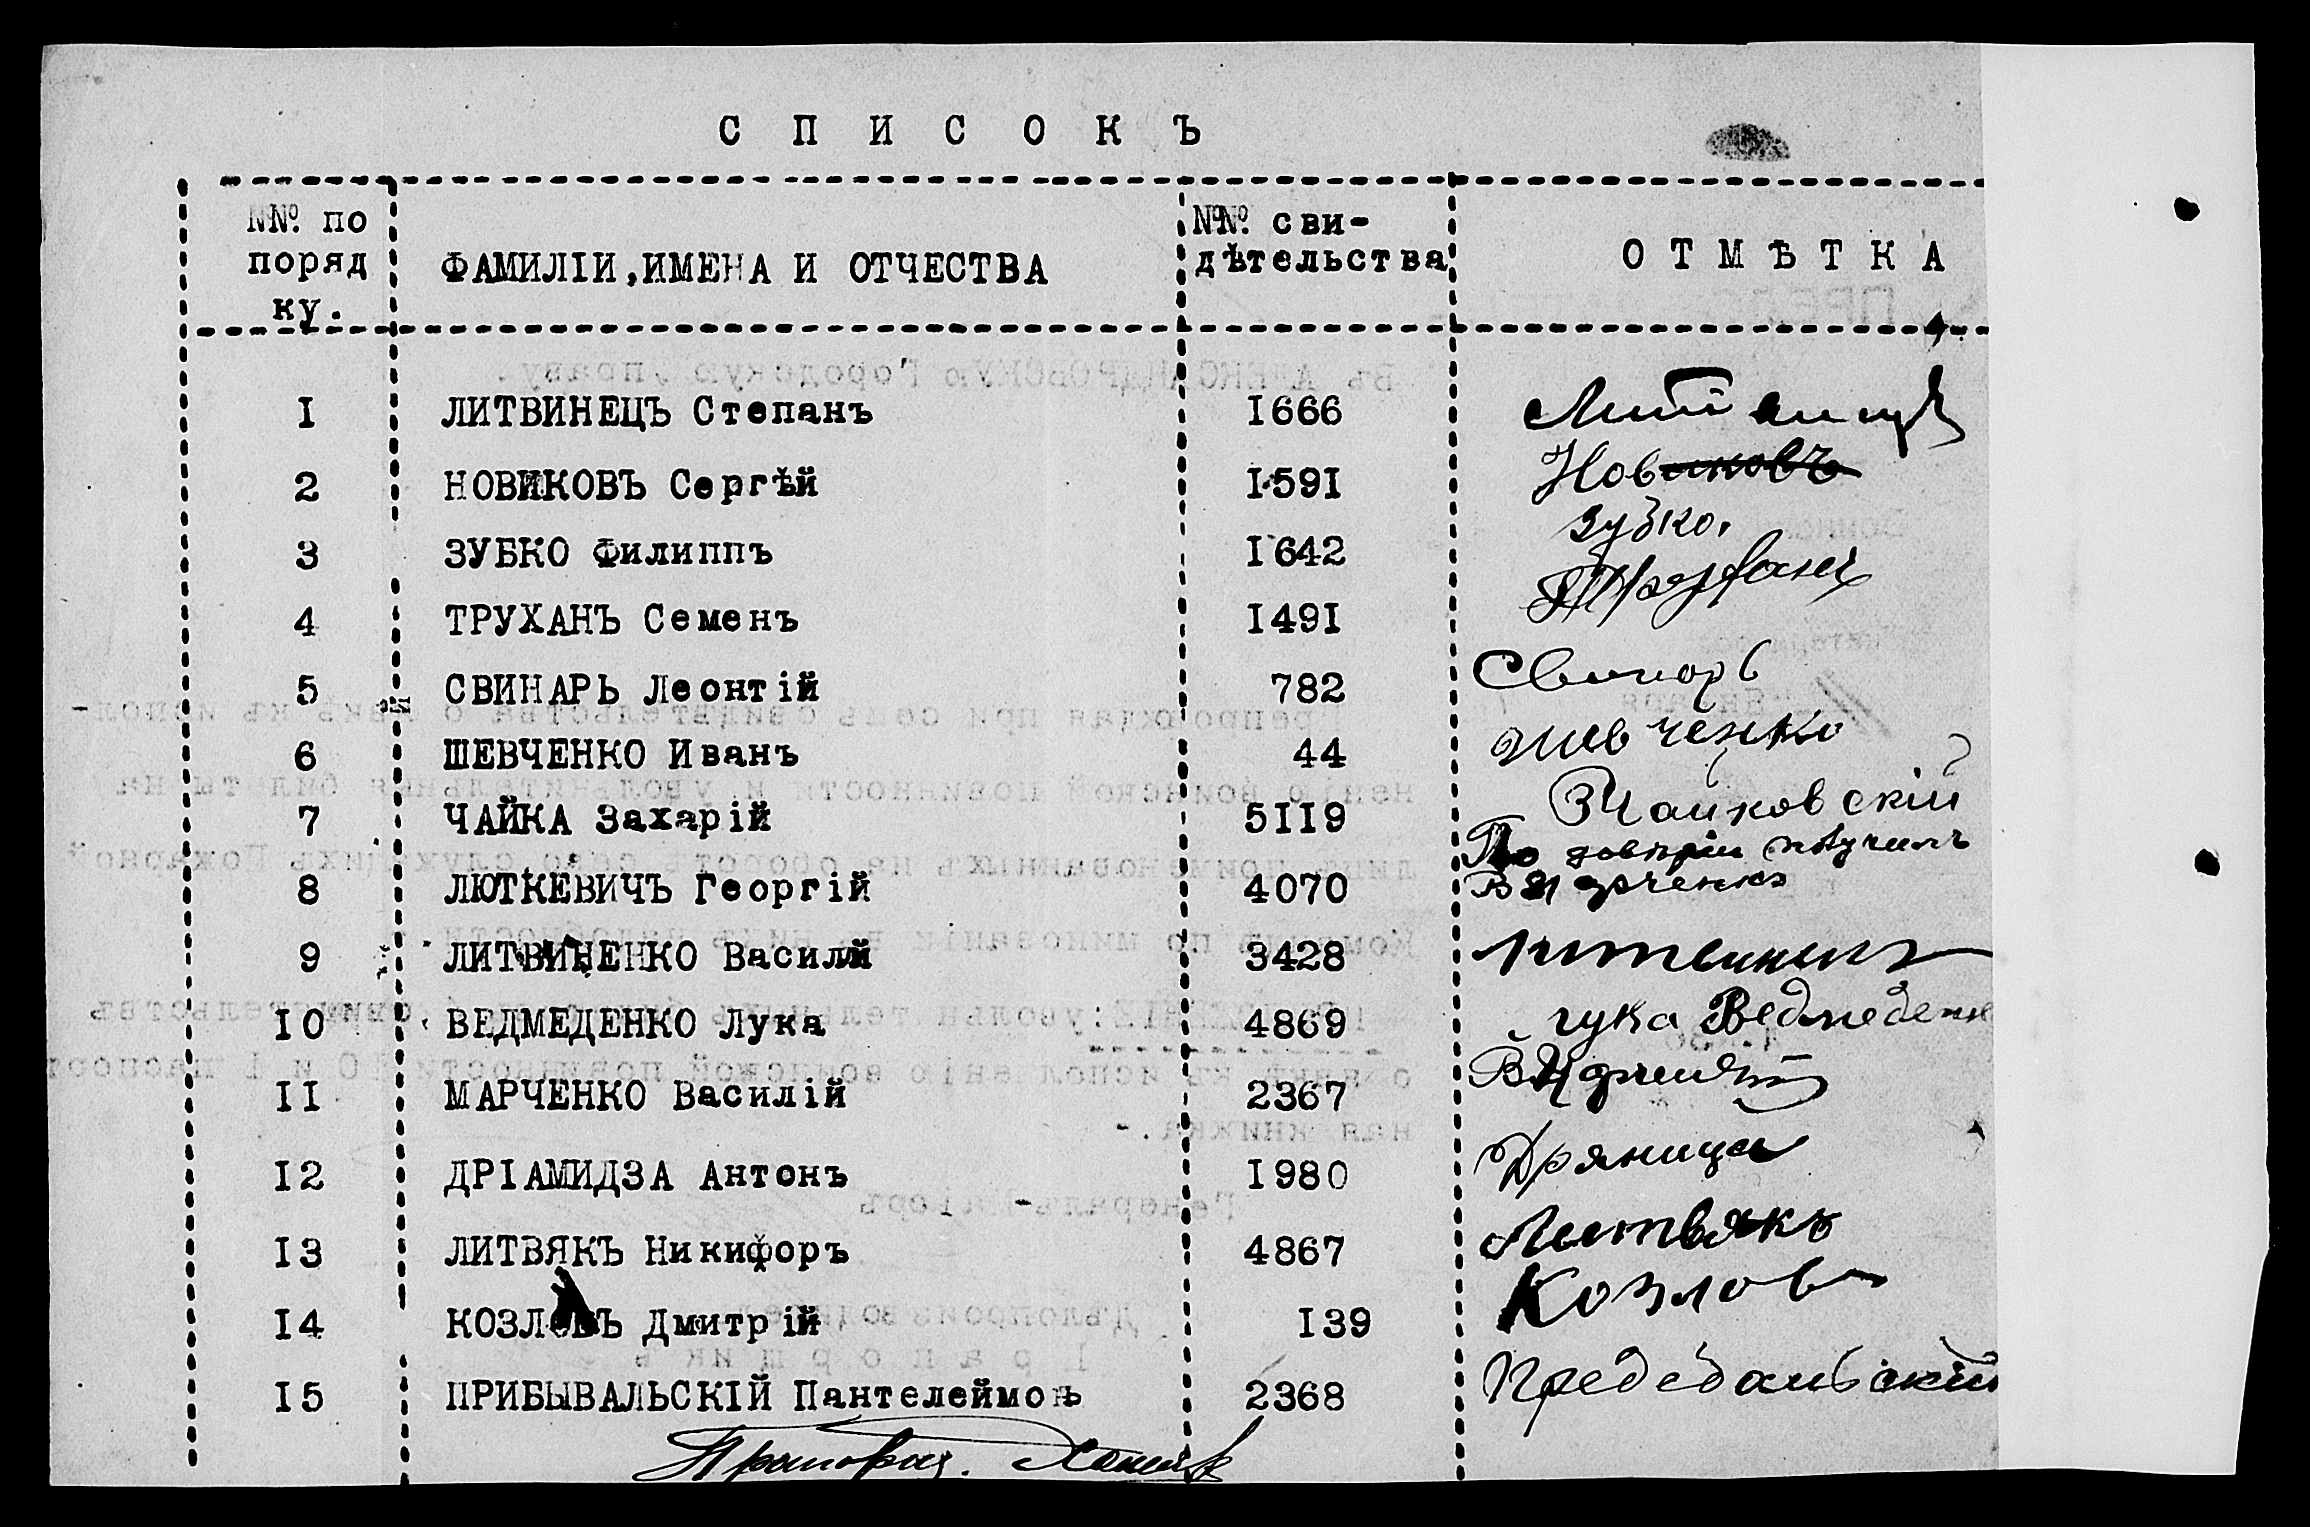 СПИСОКЪ
№№ по порядку.
ФАМИЛІИ, ИМЕНА И ОТЧЕСТВА
№№ свидѣтельства
ОТМѢТКА
1 ЛИТВИНЕЦЪ Степанъ 1666
2 НОВИКОВЪ Сергѣй 1591 Новиковъ
3 ЗУБКО Филиппъ 1642 Зубко.
4 ТРУХАНЪ Семенъ 1491 Труханъ
5 СВИНАРЬ Леонтій 782 Свинарь
6 ШЕВЧЕНКО Иванъ 44 Шевченко
7 ЧАЙКА Захарій 5119 З Чайковскій
8 ЛЮТКЕВИЧЪ Георгій 4070 По довѣрію получилъ
9 ЛИТВИНЕНКО Василій 3428
10 ВЕДМЕДЕНКО Лука 4869 Лука Ведмеденк
11 МАРЧЕНКО Василій 2367
12 ДРІАМИДЗА Антонъ 1980
13 ЛИТВЯКЪ Никифоръ 4867 Литвякъ
14 КОЗЛОВЪ Дмитрій 139 Козловъ
15 ПРИБЫВАЛЬСКІЙ Пантелеймонъ 2368